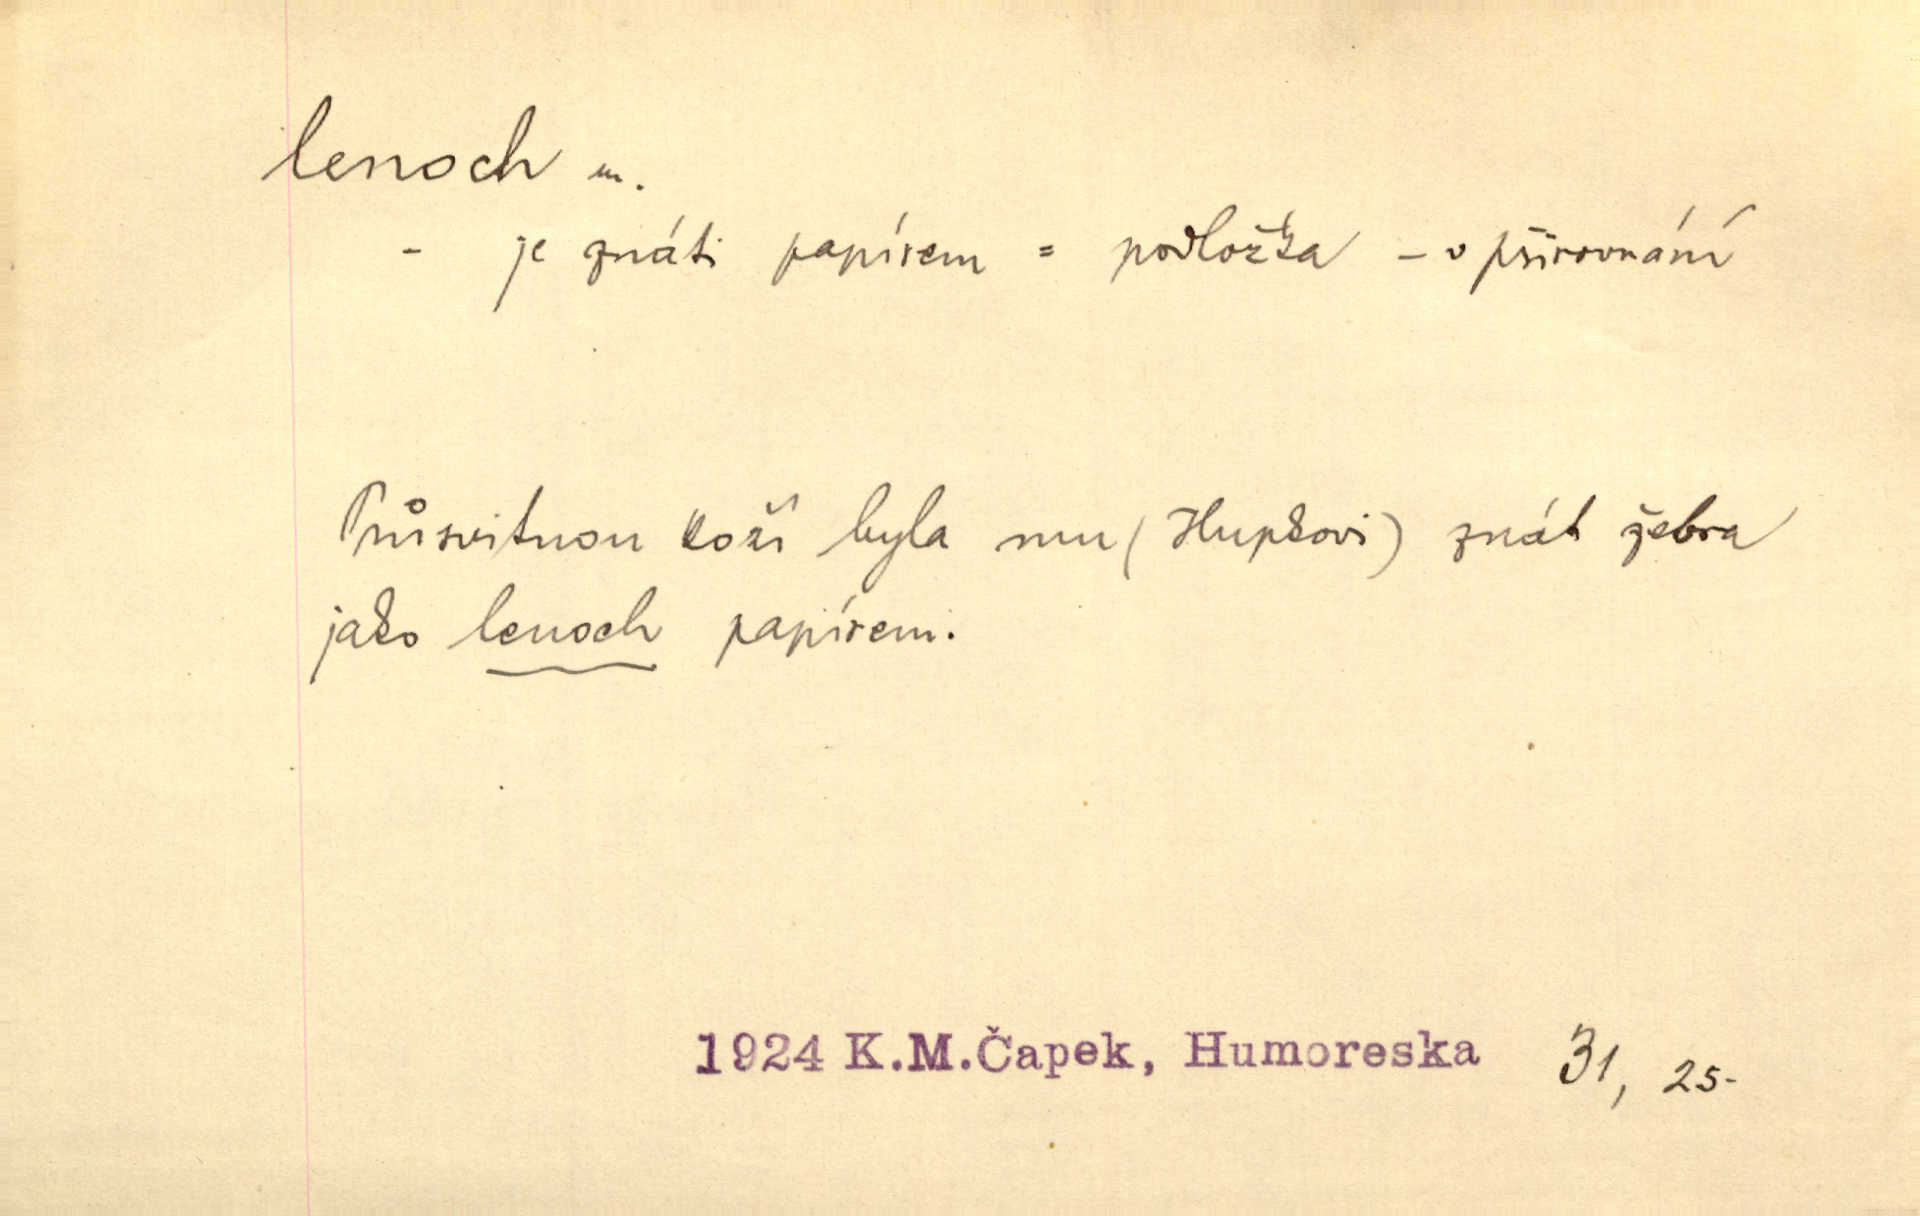 lenoch m.
- je znáti papírem = podložka - v přirovnání
Průsvitnou koží byla mu (Hupkovi) znát žebra
jako lenoch papírem.
1924 K.M.Čapek, Humoreska 31, 25-